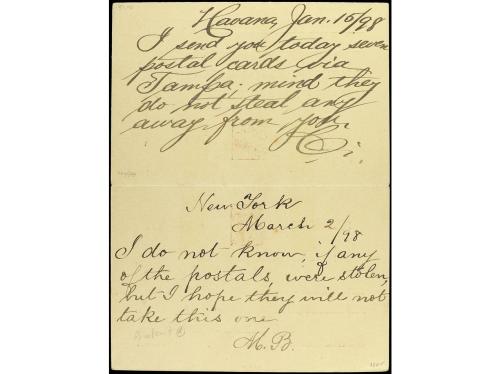 Havana, Jan. 15/98
I send you today seven
postal cards via
Tampa; mind they
do not steal any
away from you.
New York
March 2/98
I do not know, if any
of the postals, were stolen,
but I hope they will not
take this one
M. B.